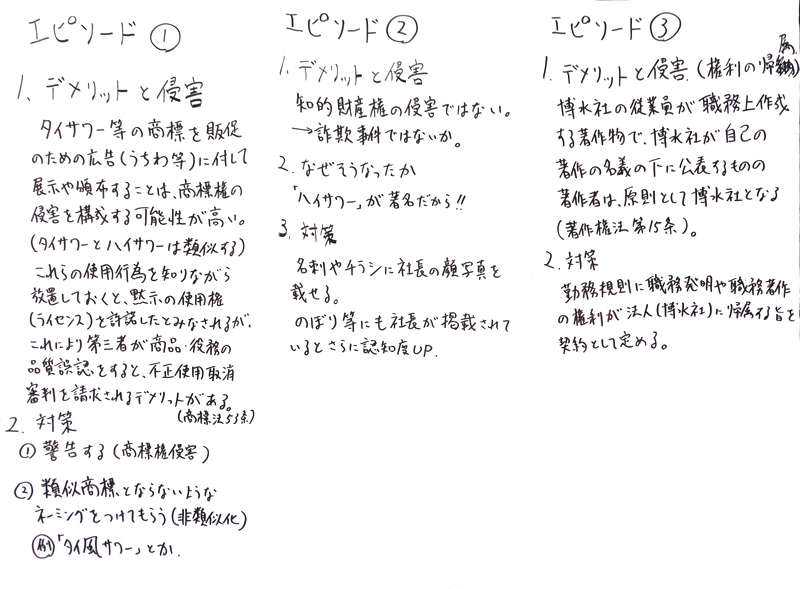 エピソード ①
1、デメリットと侵害
タイサワー等の商標を販促
のための広告(うちわ等)に付して
展示や頒布することは、商標権の
侵害を構成する可能性が高い。
(タイサワーとハイサワーは類似する)
これらの使用行為を知りながら
放置しておくと、黙示の使用権
(ライセンス)を許諾したとみなされるが、
これにより第三者が商品・役務の
品質誤認をすると、不正使用取消
審判を請求されるデメリットがある。
(商標法53条)
2. 対策
① 警告する(商標権侵害)
② 類似商標とならないような
ネーミングをつけてもらう(非類似化)
例 「タイ風サワー」とか.
エピソード ②
1. デメリットと侵害
知的財産権の侵害ではない。
→詐欺事件ではないか。
2. なぜそうなったか
「ハイサワー」が著名だから!!
3. 対策
名刺やチラシに社長の顔写真を
載せる。
のぼり等にも社長が掲載されて
いるとさらに認知度UP.
エピソード ③
1. デメリットと侵害.(権利の帰属)
博水社の従業員が職務上作成
する著作物で、博水社が自己の
著作の名義の下に公表するものの
著作者は、原則として博水社となる
(著作権法第15条)。
2. 対策
勤務規則に職務発明や職務著作
の権利が法人(博水社)に帰属する旨を
契約として定める。